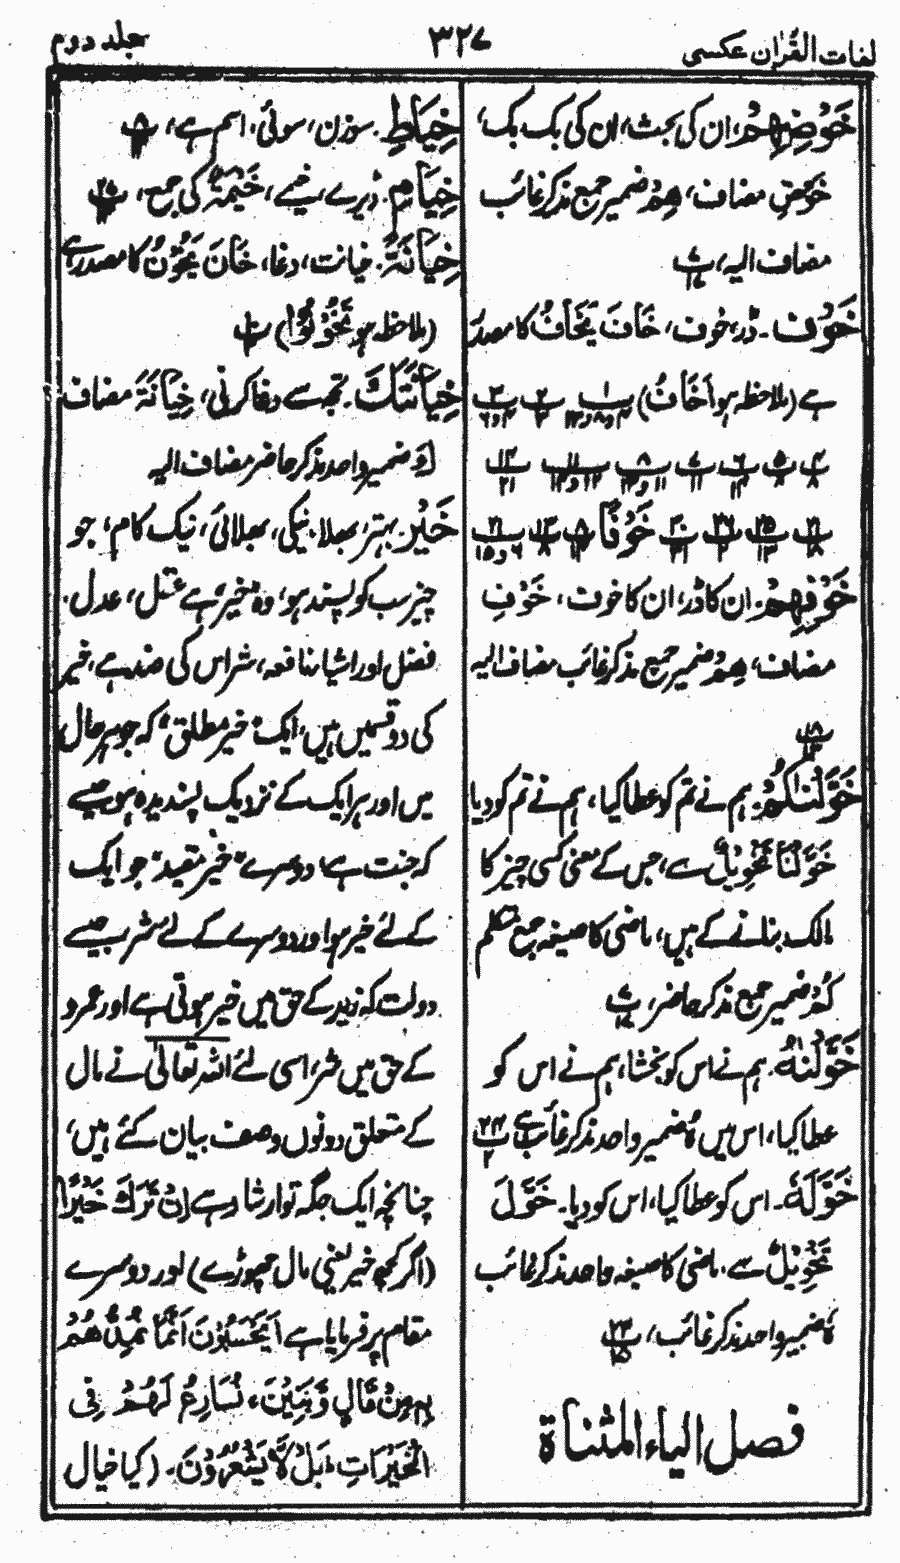 لغات القرآن عکسی
۳۲۷
جلد دوم
خَوْضِهِمْ، ان کی بحث، ان کی بک بک،
خَوْضِ مضاف، هِمْ ضمیر جمع مذکر غائب
مضاف الیہ،
خَوْف۔ ڈر، خوف، خَافَ یَخَافُ کا مصدر
ہے (ملاحظہ ہو اَخَافُ)
خَوْفًا
خَوْفِهِمْ۔ ان کا ڈر، ان کا خوف، خَوْفِ
مضاف، هِمْ ضمیر جمع مذکر غائب مضاف الیہ
خَوَّلْنٰكُمْ۔ ہم نے تم کو عطا کیا، ہم نے تم کو دیا
خَوَّلْنَا تَخْوِیْلٌ سے، جس کے معنی کسی چیز کا
مالک بنانے کے ہیں، ماضی کا صیغہ جمع متکلم
كُمْ ضمیر جمع مذکر حاضر،
خَوَّلْنٰهُ۔ ہم نے اس کو بخشا، ہم نے اس کو
عطا کیا، اس میں ہُ ضمیر واحد مذکر غائب ہے
خَوَّلَهٗ۔ اس کو عطا کیا، اس کو دیا۔ خَوَّلَ
تَخْوِیْلٌ سے، ماضی کا صیغہ واحد مذکر غائب
ہٗ ضمیر واحد مذکر غائب،
فصل الیاء المثناة
خِیَاطِ۔ سوزن، سوئی، اسم ہے،
خِیَام۔ ڈیرے، خیمے، خَیْمَةٌ کی جمع،
خِیَانَةً۔ خیانت، دغا، خَانَ یَخُوْنُ کا مصدر ہے
(ملاحظہ ہو تَخُوْنُوْا)
خِیَانَتَكَ۔ تجھ سے دغا کرنی، خِیَانَةَ مضاف
كَ ضمیر واحد مذکر حاضر مضاف الیہ
خَیْر۔ بہتر، بھلا، نیکی، بھلائی، نیک کام، جو
چیز سب کو پسند ہو، وہ "خیر" ہے، عقل، عدل،
فضل اور اشیاء نافعہ، شر اس کی ضد ہے، خیر
کی دو قسمیں ہیں، ایک "خیر مطلق" کہ جو ہر حال
میں اور ہر ایک کے نزدیک پسندیدہ ہو، جیسے
کہ جنت ہے، دوسرے "خیر مقید" جو ایک
کے لئے خیر ہو اور دوسرے کے لئے شر، جیسے
دولت کہ زید کے حق میں خیر ہوتی ہے اور عمرو
کے حق میں شر، اسی لئے اللہ تعالیٰ نے مال
کے متعلق دونوں وصف بیان کئے ہیں،
چنانچہ ایک جگہ تو ارشاد ہے اِنْ تَرَكَ خَیْرًا
(اگر کچھ خیر یعنی مال چھوڑے) اور دوسرے
مقام پر فرمایا ہے اَیَحْسَبُوْنَ اَنَّمَا نُمِدُّهُمْ
بِهٖ مِنْ مَّالٍ وَّبَنِیْنَ، نُسَارِعُ لَهُمْ فِی
الْخَیْرَاتِ، بَلْ لَّا یَشْعُرُوْنَ۔ (کیا خیال